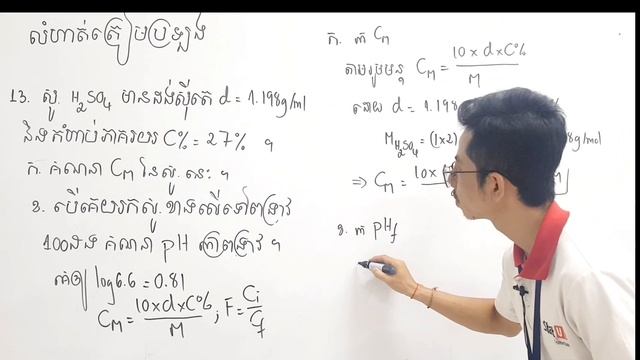 លំហាត់ត្រៀមប្រឡង
13. សូ. H₂SO₄ មានដង់ស៊ីតេ d = 1.198g/ml
និងកំហាប់ភាគរយ C% = 27% ។
ក. គណនា C_M នៃសូ. នេះ ។
ខ. បើគេយកសូ. ខាងលើទៅពង្រាវ
100ដង គណនា pH ក្រោយពង្រាវ ។
គេឲ្យ log6.6 = 0.81
C_M = 10×d×C% / M ; F = Ci / Cf
ក. រក C_M
តាមរូបមន្ត C_M = 10×d×C% / M
ដោយ d = 1.198
M_H₂SO₄ = (1×2) g/mol
⇒ C_M = 10× M
ខ. រក pH_f